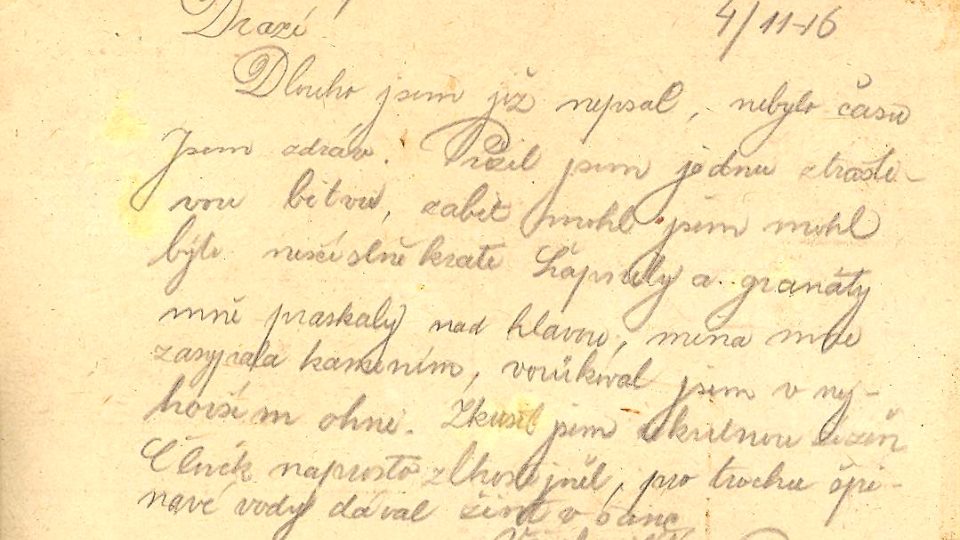 Drazí 4/11-16
Dlouho jsem již nepsal, nebylo času
Jsem zdráv. Prožil jsem jednu strašli-
vou bitvu, zabit mohl jsem mohl
býti nesčíslně krate Šrapnely a granáty
mně praskaly nad hlavou, mina mne
zasypala kamením, vorukoval jsem v nej-
horším ohni. Zkusil jsem ukrutnou žízeň
Člověk naprosto zlhostejněl, pro trochu špi-
navé vody dával život v šanc